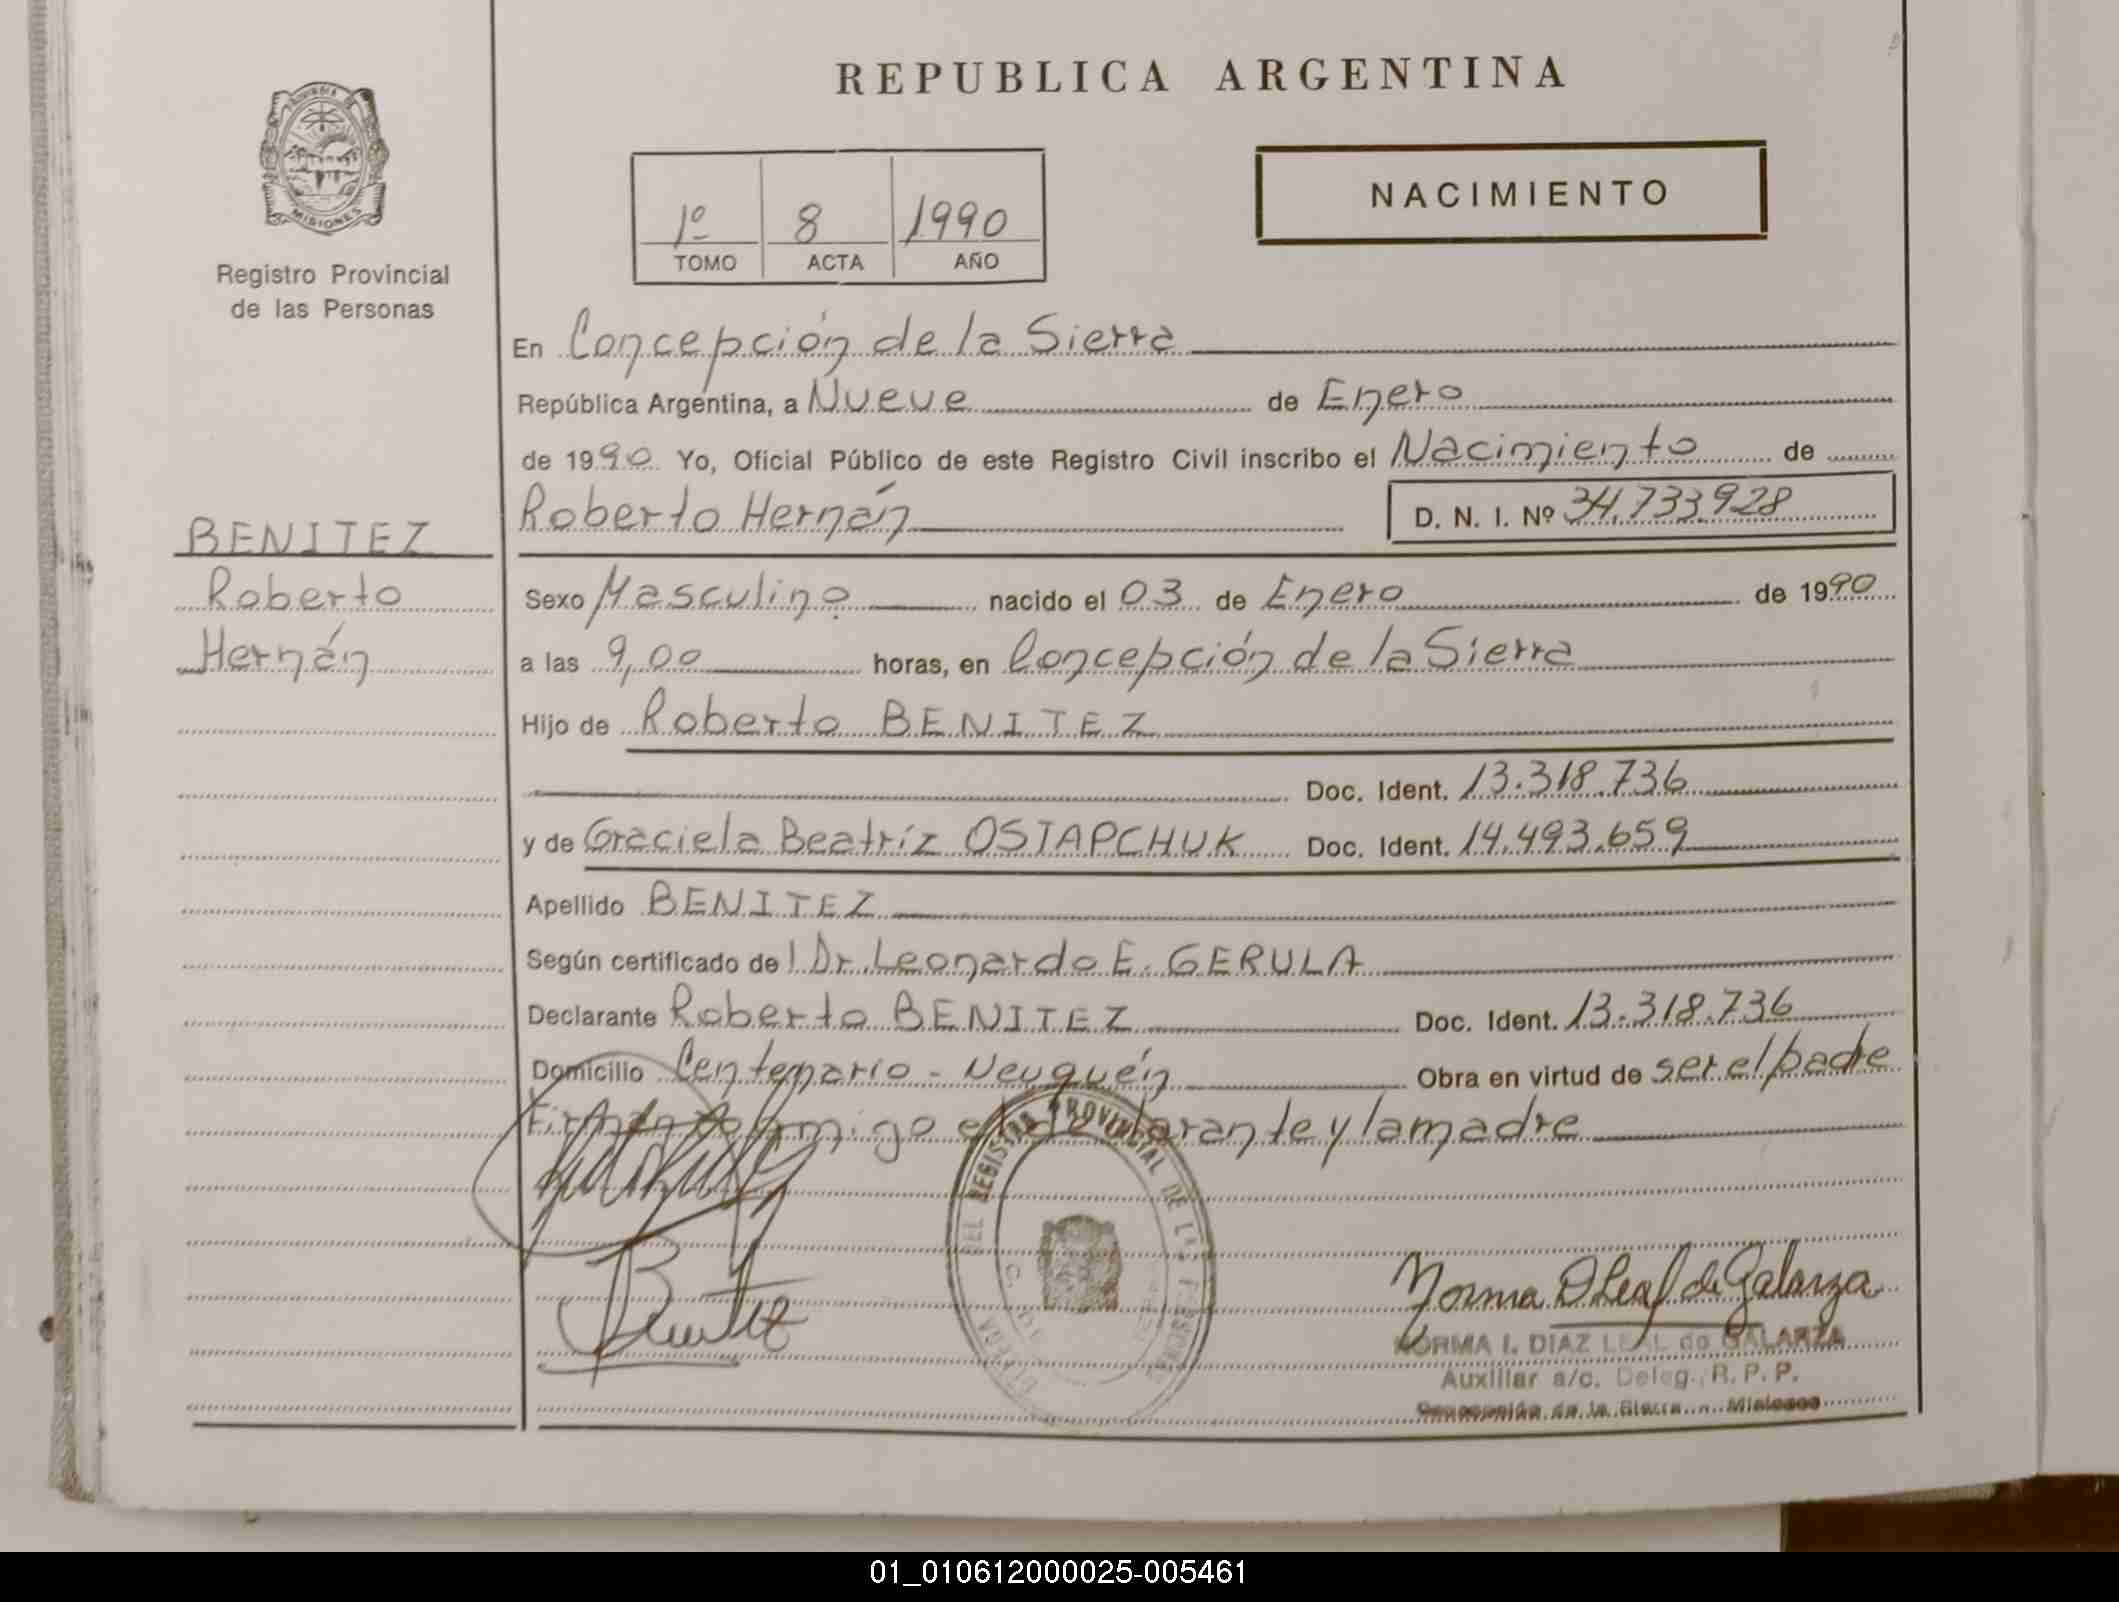 REPUBLICA ARGENTINA
PROVINCIA DE
MISIONES
Registro Provincial
de las Personas
NACIMIENTO
1º 8 1990
TOMO ACTA AÑO
En Concepción de la Sierra
República Argentina, a Nueve de Enero
de 1990 Yo, Oficial Público de este Registro Civil inscribo el Nacimiento de
Roberto Hernán D. N. I. Nº 34.733.928
BENITEZ
Roberto
Hernán
Sexo Masculino nacido el 03 de Enero de 1990
a las 9,00 horas, en Concepción de la Sierra
Hijo de Roberto BENITEZ
Doc. Ident. 13.318.736
y de Graciela Beatríz OSTAPCHUK Doc. Ident. 14.493.659
Apellido BENITEZ
Según certificado del Dr. Leonardo E. GERULA
Declarante Roberto BENITEZ Doc. Ident. 13.318.736
Domicilio Centenario - Neuquén Obra en virtud de ser el padre
Firman conmigo el declarante y la madre
DEL REGISTRO PROVINCIAL DE LAS PERSONAS
Benitez
Norma D Leal de Galarza
NORMA I. DIAZ LEAL de GALARZA
Auxiliar a/c. Deleg. R. P. P.
Concepción de la Sierra - Misiones
01_010612000025-005461